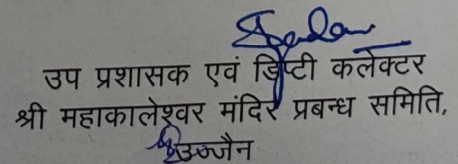 उप प्रशासक एवं डिप्टी कलेक्टर
श्री महाकालेश्वर मंदिर प्रबन्ध समिति,
उज्जैन